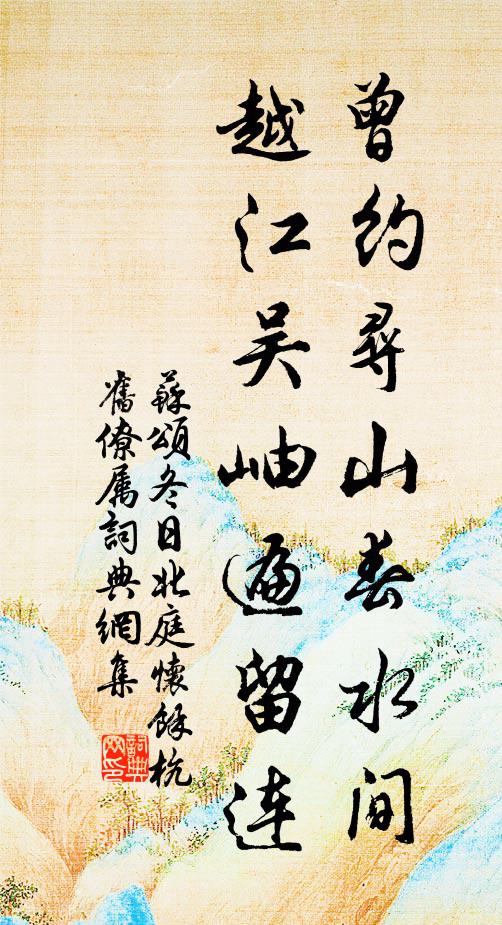 曾约尋山春水间
越江吴岫遍留连
蘇頌冬日北庭懷餘杭
舊僚属詞典網集
詞典
网印